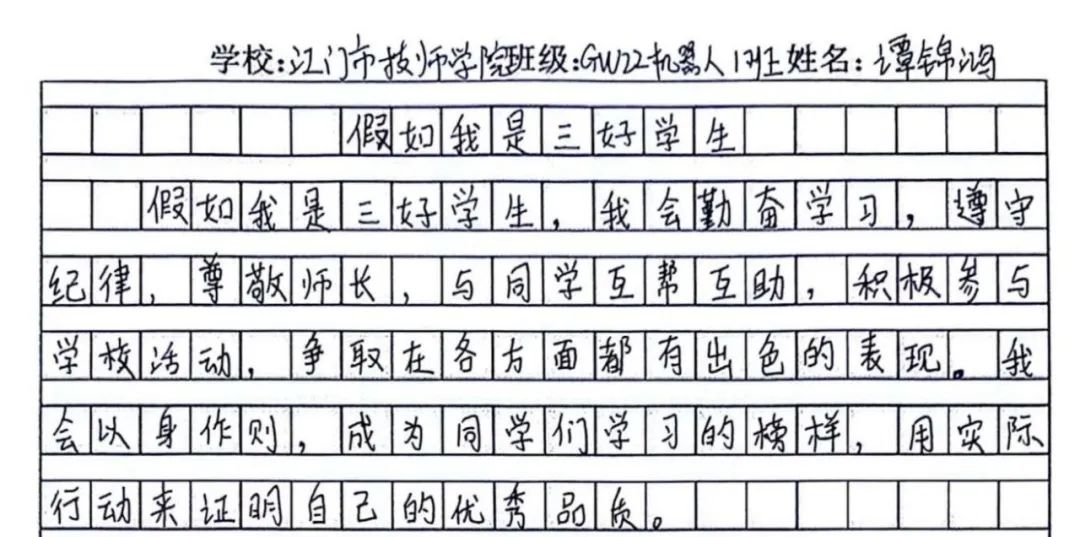 学校:江门市技师学院班级:GW22机器人1班姓名:谭锦鸿
假如我是三好学生
假如我是三好学生,我会勤奋学习,遵守
纪律,尊敬师长,与同学互帮互助,积极参与
学校活动,争取在各方面都有出色的表现。我
会以身作则,成为同学们学习的榜样,用实际
行动来证明自己的优秀品质。